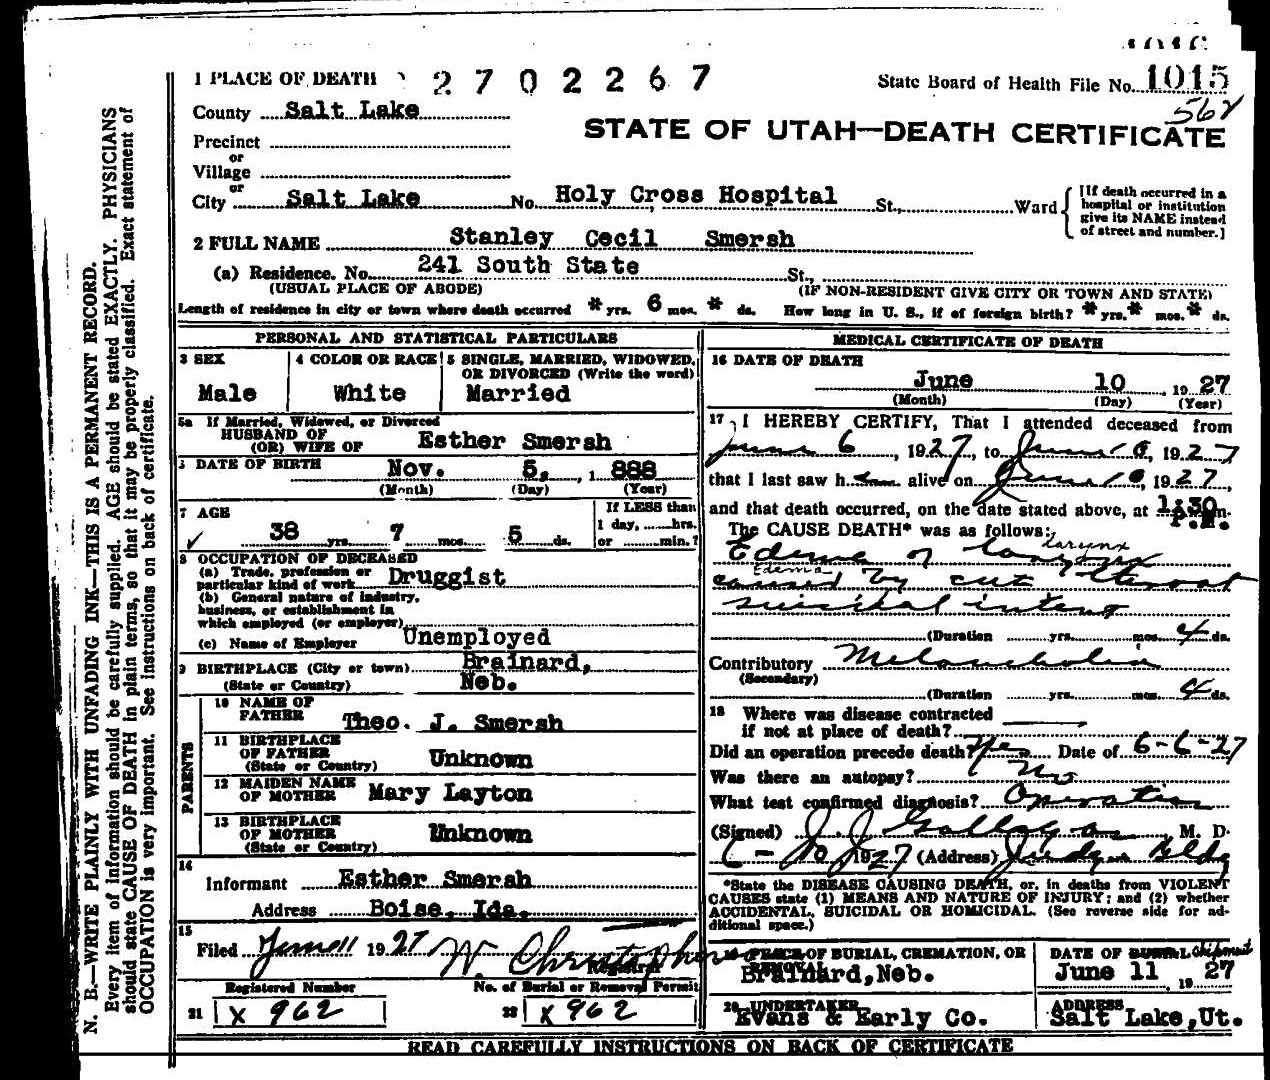 1 PLACE OF DEATH 2702267 State Board of Health File No. 1015
County Salt Lake 562
STATE OF UTAH—DEATH CERTIFICATE
Precinct
or
Village
or
City Salt Lake No. Holy Cross Hospital St., Ward { [If death occurred in a hospital or institution give its NAME instead of street and number.]
2 FULL NAME Stanley Cecil Smersh
(a) Residence. No. 241 South State St.,
(USUAL PLACE OF ABODE) (IF NON-RESIDENT GIVE CITY OR TOWN AND STATE)
Length of residence in city or town where death occurred * yrs. 6 mos. * ds. How long in U. S., if of foreign birth? * yrs. * mos. * ds.
PERSONAL AND STATISTICAL PARTICULARS
3 SEX Male
4 COLOR OR RACE White
5 SINGLE, MARRIED, WIDOWED, OR DIVORCED (Write the word) Married
5a If Married, Widowed, or Divorced
HUSBAND OF
(OR) WIFE OF Esther Smersh
DATE OF BIRTH Nov. 5, 1888
(Month) (Day) (Year)
7 AGE 38 yrs. 7 mos. 5 ds.
If LESS than
1 day, hrs.
or min.?
8 OCCUPATION OF DECEASED
(a) Trade, profession or
particular kind of work Druggist
(b) General nature of industry,
business, or establishment in
which employed (or employer)
(c) Name of Employer Unemployed
9 BIRTHPLACE (City or town) Brainard,
(State or Country) Neb.
PARENTS
10 NAME OF
FATHER Theo. J. Smersh
11 BIRTHPLACE
OF FATHER Unknown
(State or Country)
12 MAIDEN NAME
OF MOTHER Mary Layton
13 BIRTHPLACE
OF MOTHER Unknown
(State or Country)
14
Informant Esther Smersh
Address Boise, Ida.
15
Filed June 11 1927 W Christopherson
Registrar
Registered Number No. of Burial or Removal Permit
21 X 962 22 X 962
MEDICAL CERTIFICATE OF DEATH
16 DATE OF DEATH
June 10, 1927
(Month) (Day) (Year)
17 I HEREBY CERTIFY, That I attended deceased from
June 6, 1927, to June 10, 1927
that I last saw him alive on June 10, 1927,
and that death occurred, on the date stated above, at 1:30 P.M. m.
The CAUSE DEATH* was as follows:
Edema of Larynx Larynx
Edema
caused by cut throat
suicidal intent
(Duration yrs. mos. 4 ds.
Contributory Melancholia
(Secondary)
(Duration yrs. mos. 4 ds.
18 Where was disease contracted
if not at place of death?
Did an operation precede death? Yes Date of 6-6-27
Was there an autopsy? No
What test confirmed diagnosis? Operation
(Signed) J. J. Gallagan, M. D.
6-10 1927 (Address) Judge Bldg
*State the DISEASE CAUSING DEATH, or, in deaths from VIOLENT
CAUSES state (1) MEANS AND NATURE OF INJURY; and (2) whether
ACCIDENTAL, SUICIDAL OR HOMICIDAL. (See reverse side for ad-
ditional space.)
19 PLACE OF BURIAL, CREMATION, OR
REMOVAL
Brainard, Neb.
DATE OF BURIAL Shipment
June 11, 1927
20 UNDERTAKER
Evans & Early Co.
ADDRESS
Salt Lake, Ut.
READ CAREFULLY INSTRUCTIONS ON BACK OF CERTIFICATE
N. B.—WRITE PLAINLY WITH UNFADING INK—THIS IS A PERMANENT RECORD.
Every item of information should be carefully supplied. AGE should be stated EXACTLY. PHYSICIANS
should state CAUSE OF DEATH in plain terms, so that it may be properly classified. Exact statement of
OCCUPATION is very important. See instructions on back of certificate.